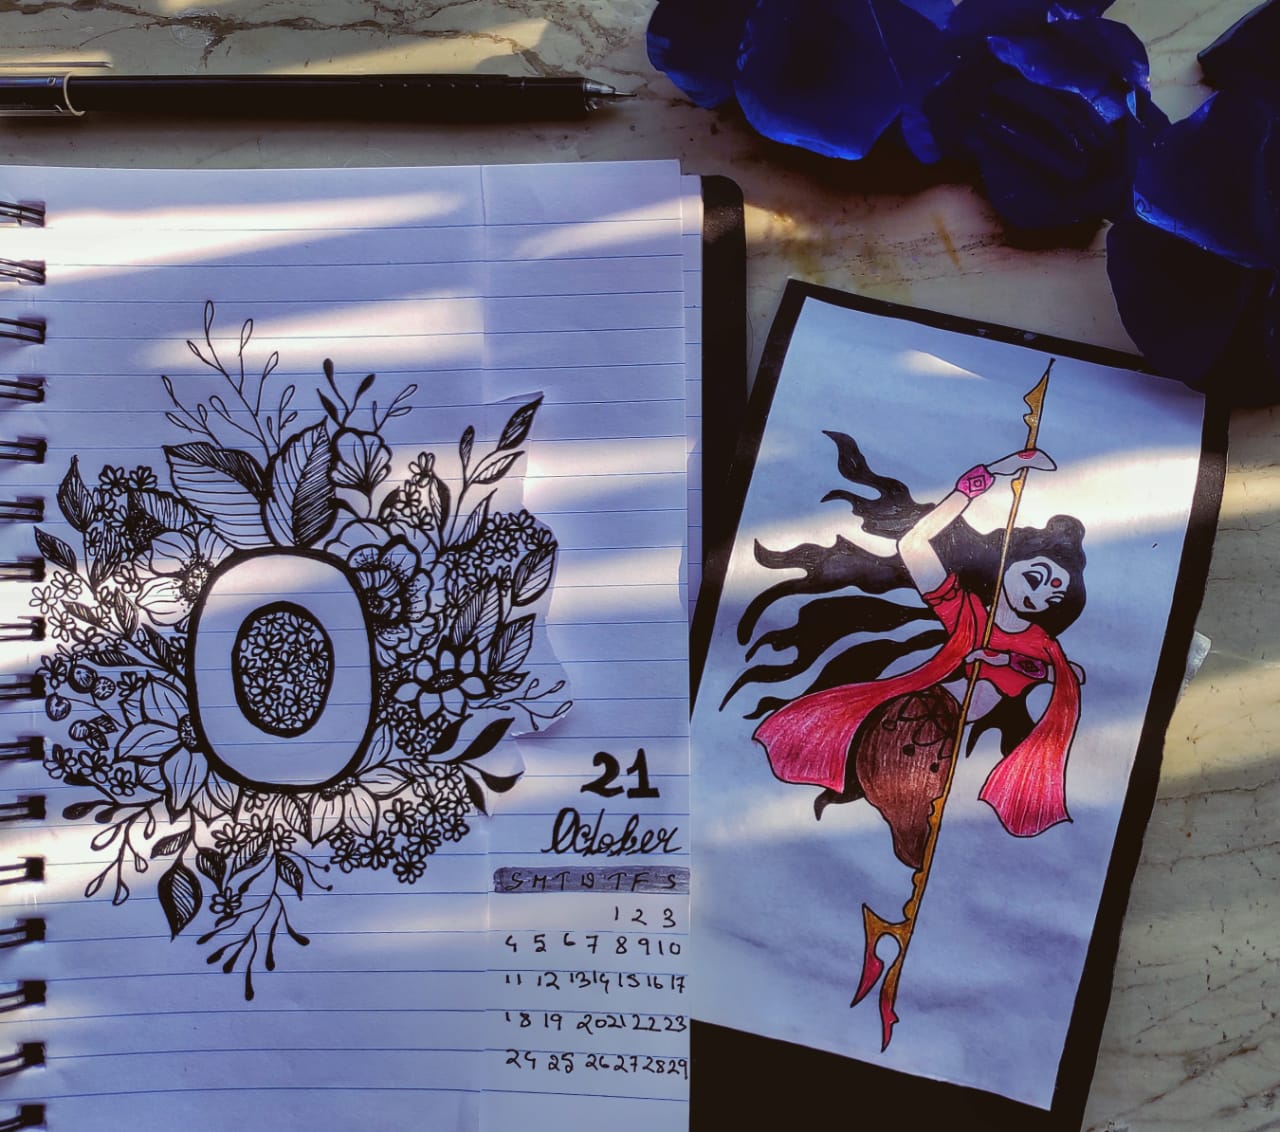 O
21
October
S M T W T F S
1 2 3
4 5 6 7 8 9 10
11 12 13 14 15 16 17
18 19 20 21 22 23
24 25 26 27 28 29